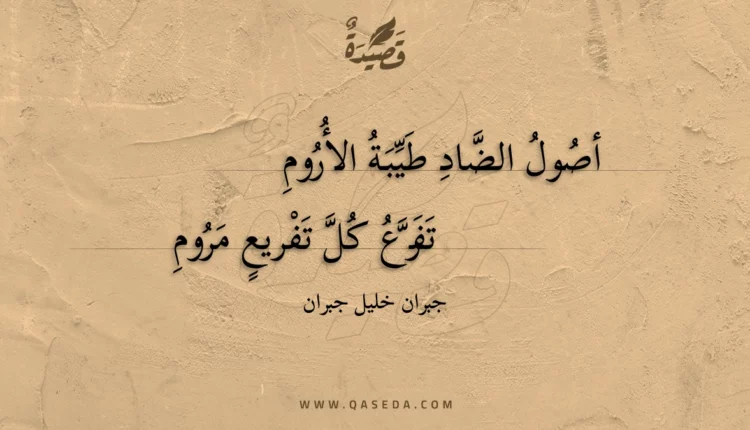 قَصِيدَةٌ
أصُولُ الضَّادِ طَيِّبَةُ الأُرُومِ
تَفَرَّعُ كُلَّ تَفْرِيعٍ مَرُومِ
جبران خليل جبران
WWW.QASEDA.COM